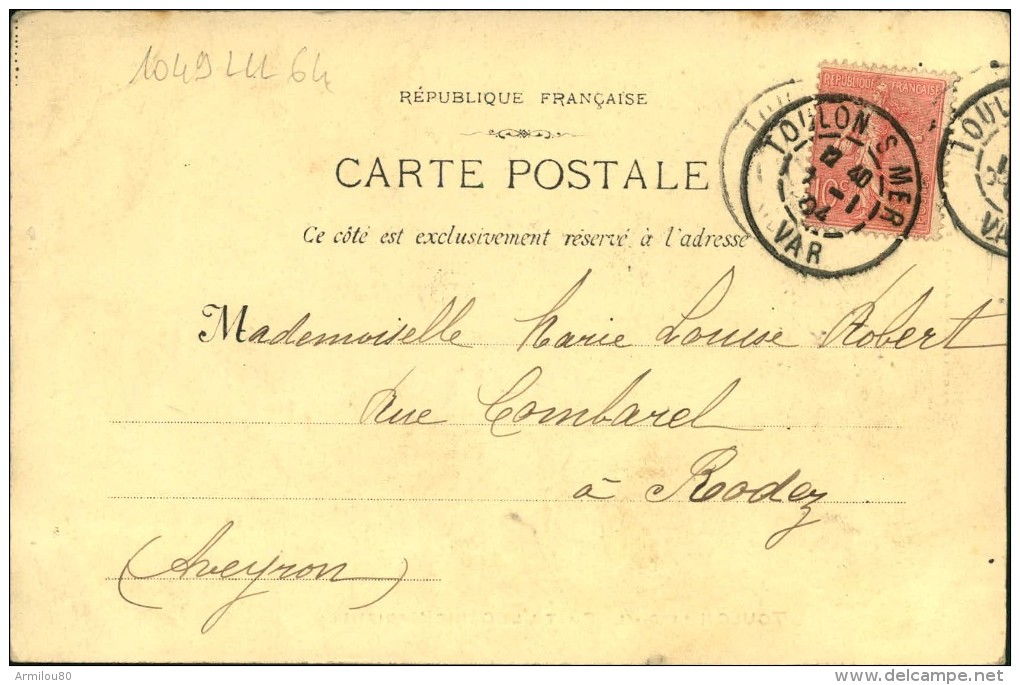 1049 LLL 64
RÉPUBLIQUE FRANÇAISE
CARTE POSTALE
Ce côté est exclusivement réservé à l'adresse
RÉPUBLIQUE FRANÇAISE
TOULON S MER
12 40
7 - 1
04
VAR
TOUL
VA
Mademoiselle Marie Louise Robert
Rue Combarel
à Rodez
(Aveyron)
Armilou80
www.delcampe.net